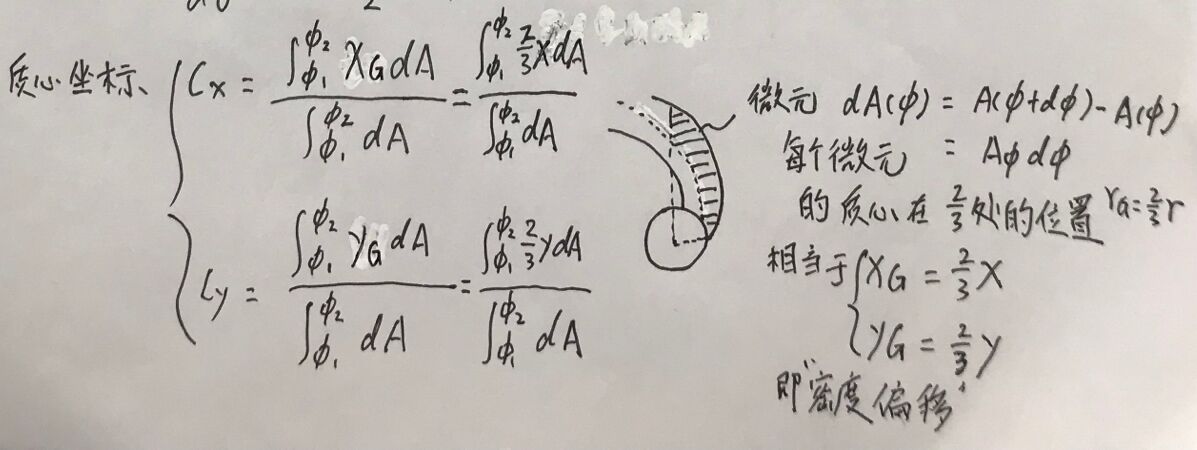 质心坐标、
Cx = ∫_{ϕ₁}^{ϕ₂} X_G dA / ∫_{ϕ₁}^{ϕ₂} dA = ∫_{ϕ₁}^{ϕ₂} 2/3 X dA / ∫_{ϕ₁}^{ϕ₂} dA
Cy = ∫_{ϕ₁}^{ϕ₂} y_G dA / ∫_{ϕ₁}^{ϕ₂} dA = ∫_{ϕ₁}^{ϕ₂} 2/3 y dA / ∫_{ϕ₁}^{ϕ₂} dA
微元 dA(ϕ) = A(ϕ+dϕ)-A(ϕ)
每个微元 = Aϕdϕ
的质心在 2/3 处的位置 r_G = 2/3 r
相当于 { X_G = 2/3 X
y_G = 2/3 y
即"密度偏移"